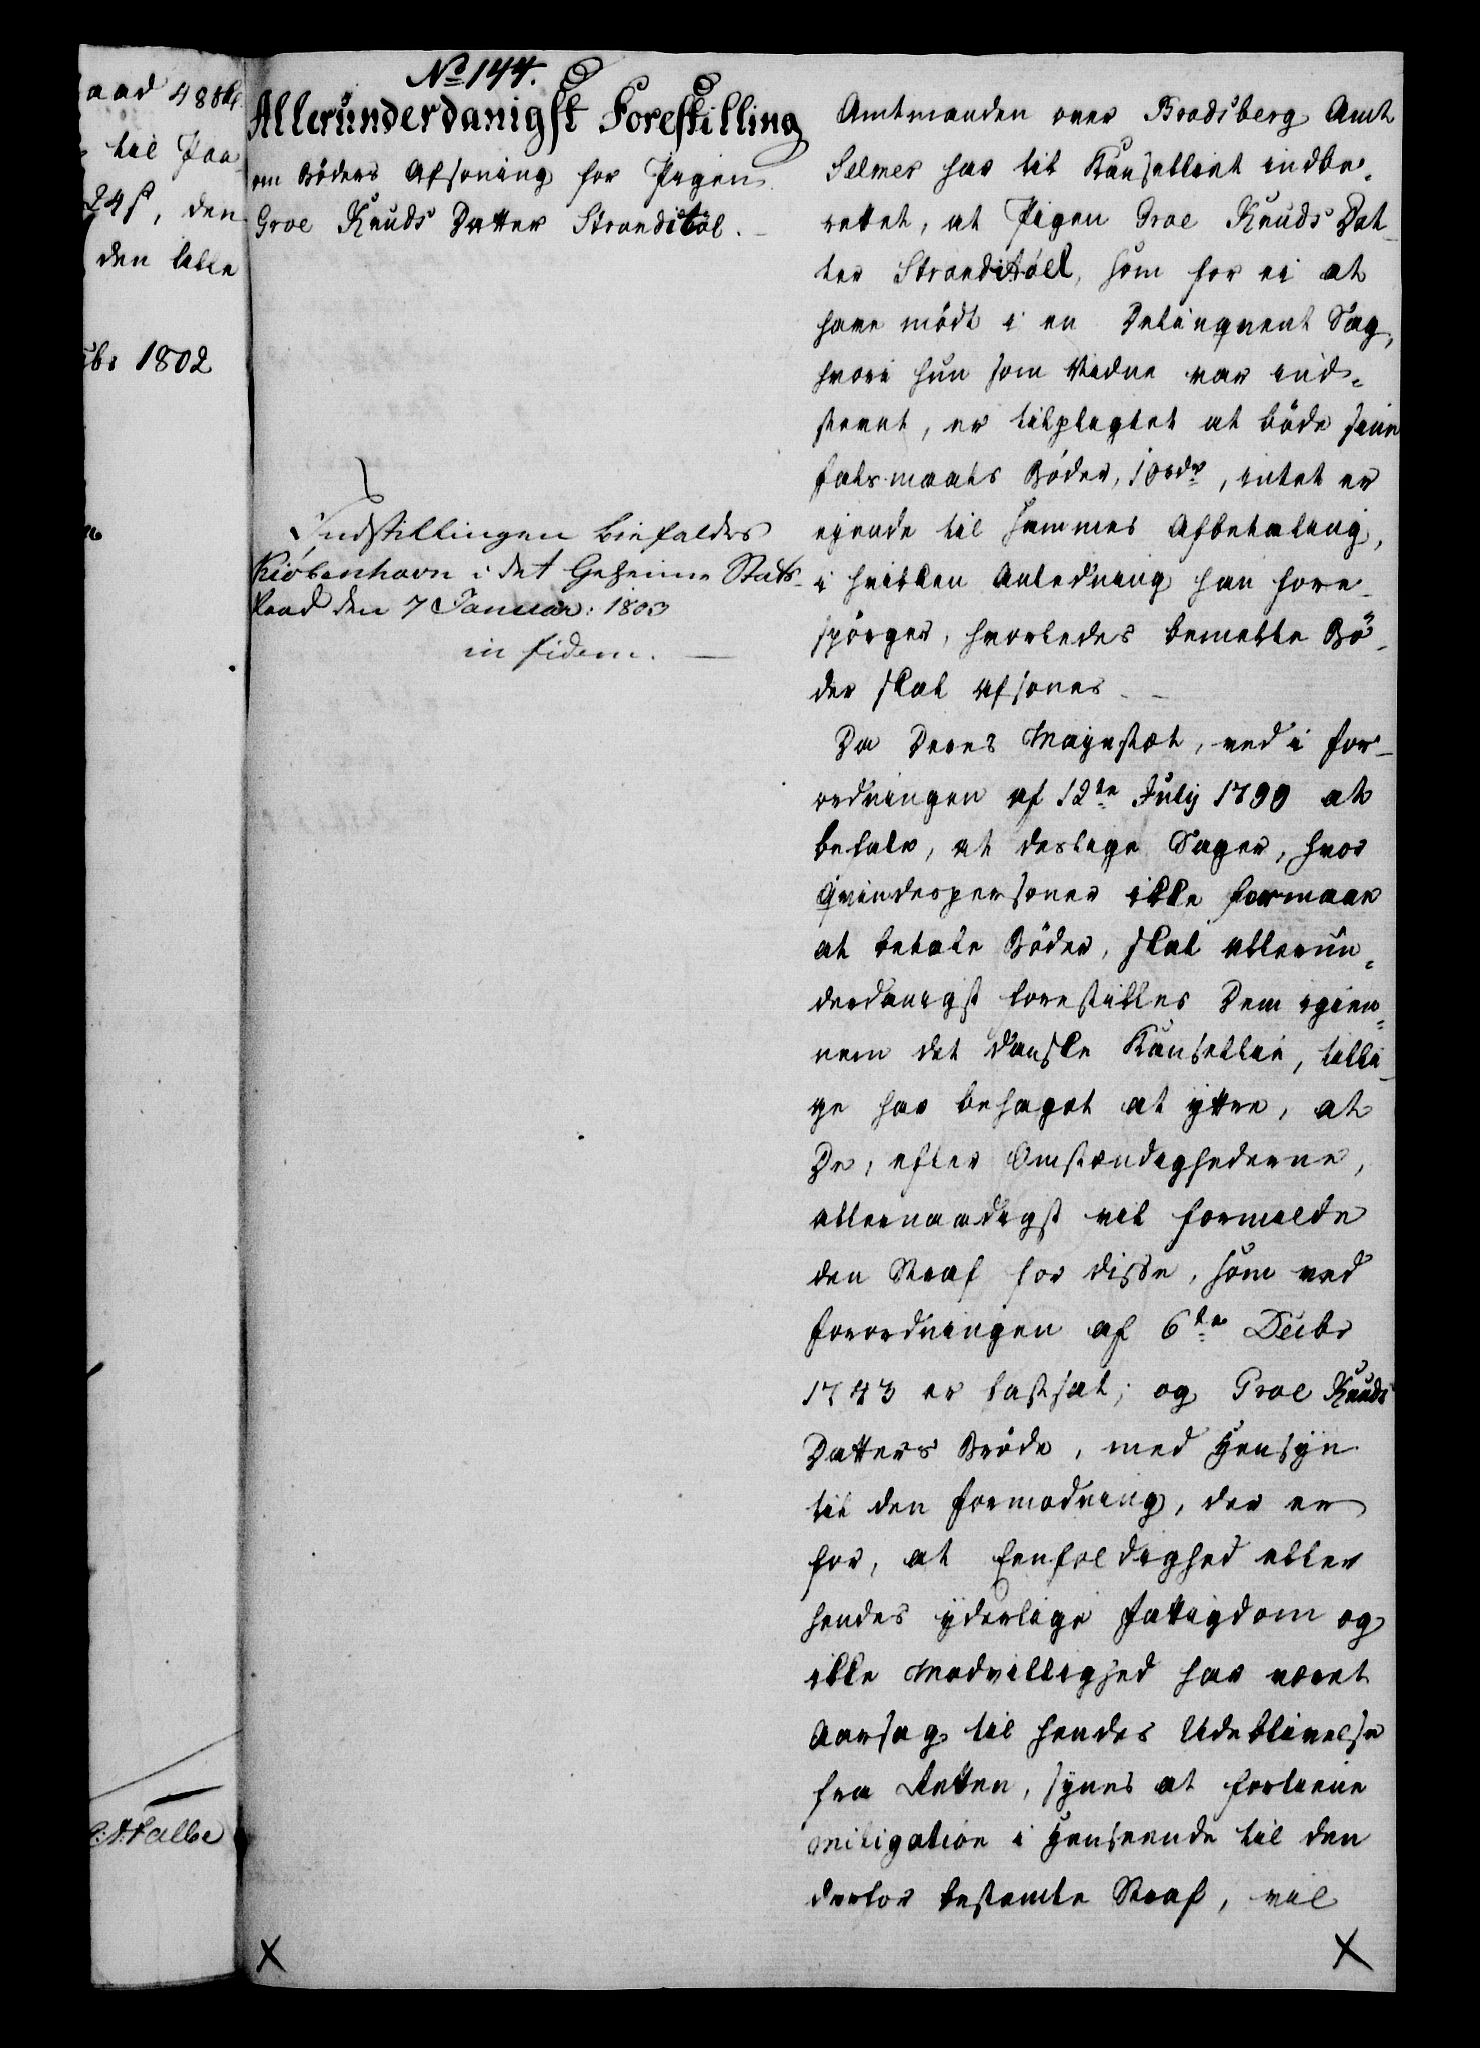 aad 48 bl
til Paa
24 s, den
den lille
cbr 1802
A: Falbe
No 144.
Allerunderdanigst Forestilling
om Böders Afsoning for Pigen
Groe Knuds Datter Strandistöl. -
Indstillingen biefaldes
Kiöbenhavn i det Geheime Stats-
Raad den 7 Januar: 1803
in fidem. -
Amtmanden over Bradsberg Amt
Selmer har til Kanselliet indbe-
rettet, at Pigen Groe Knuds Dat-
ter Strandistöel, som for ei at
have mödt i en Delinqvent Sag,
hvori hun som Vidne var ind-
stevnt, er tilplagtet at böde sine
Falsmaals Böder, 10 rdr, intet er
eiende til sammes Afbetaling,
i hvilken Anledning han fore-
spörger, hvorledes bemelte Bö-
der skal afsones -
Da Deres Majestæt, ved i For-
ordningen af 12te Julij 1799 at
befale, at deslige Sager, hvor
Qvindespersoner ikke formaae
at betale Böder, skal allerun-
derdanigst forestilles Dem igien-
nem det danske Kanselli, tilli-
ge har behaget at yttre, at
De, efter Omstændighederne,
allernaadigst vil formilde
den Straf for disse, som ved
Forordningen af 6te Decbr
1743 er fastsat; og Groe Knuds
Datters Bröde, med Hensyn
til den Formodning, der er
for, at Eenfoldighed eller
hendes yderlige Fattigdom og
ikke Modvillighed har været
Aarsag til hendes Udeblivelse
fra Retten, synes at fortiene
Mitigation i Henseende til den
derfor bestemte Straf, vil
X
X